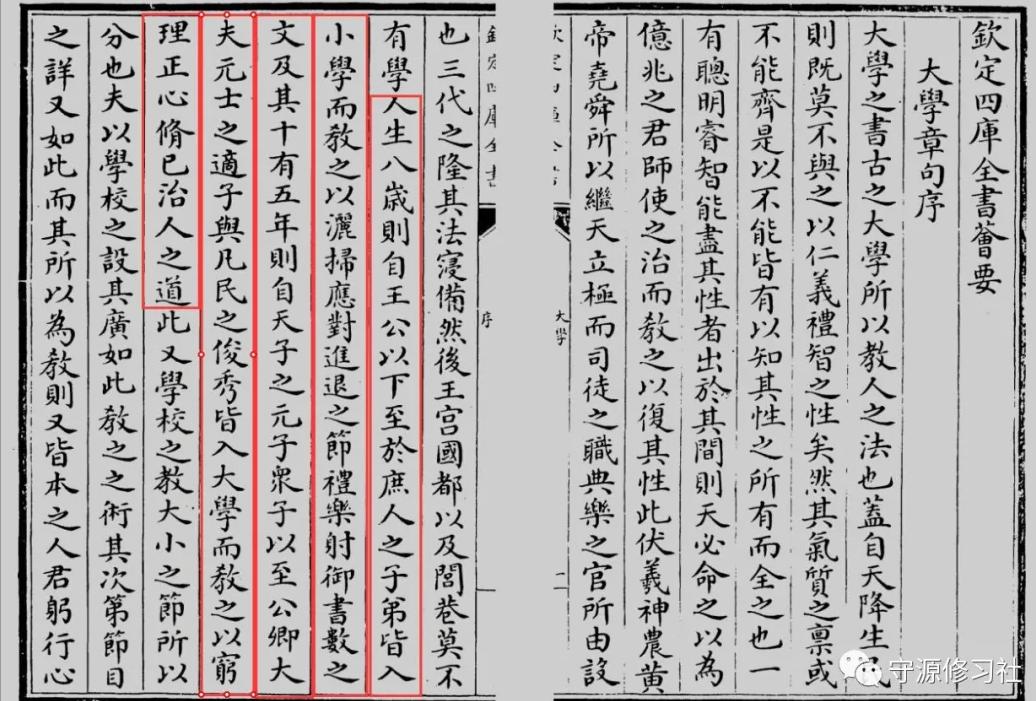 欽定四庫全書薈要
大學章句序
大學之書古之大學所以教人之法也蓋自天降生民
則既莫不與之以仁義禮智之性矣然其氣質之稟或
不能齊是以不能皆有以知其性之所有而全之也一
有聰明睿智能盡其性者出於其間則天必命之以為
億兆之君師使之治而教之以復其性此伏羲神農黃
帝堯舜所以繼天立極而司徒之職典樂之官所由設
大學
序
也三代之隆其法寖備然後王宮國都以及閭巷莫不
有學人生八歲則自王公以下至於庶人之子弟皆入
小學而教之以灑掃應對進退之節禮樂射御書數之
文及其十有五年則自天子之元子衆子以至公卿大
夫元士之適子與凡民之俊秀皆入大學而教之以窮
理正心脩已治人之道此又學校之教大小之節所以
分也夫以學校之設其廣如此教之之術其次第節目
之詳又如此而其所以為教則又皆本之人君躬行心
守源修习社